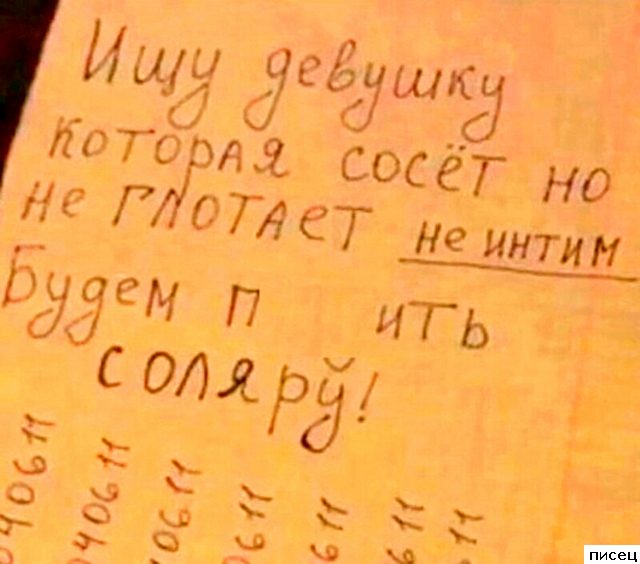 Ищу девушку
которая сосёт но
не глотает не интим
Будем п ить
соляру!
040611
40611
0611
0611
611
611
11
писец